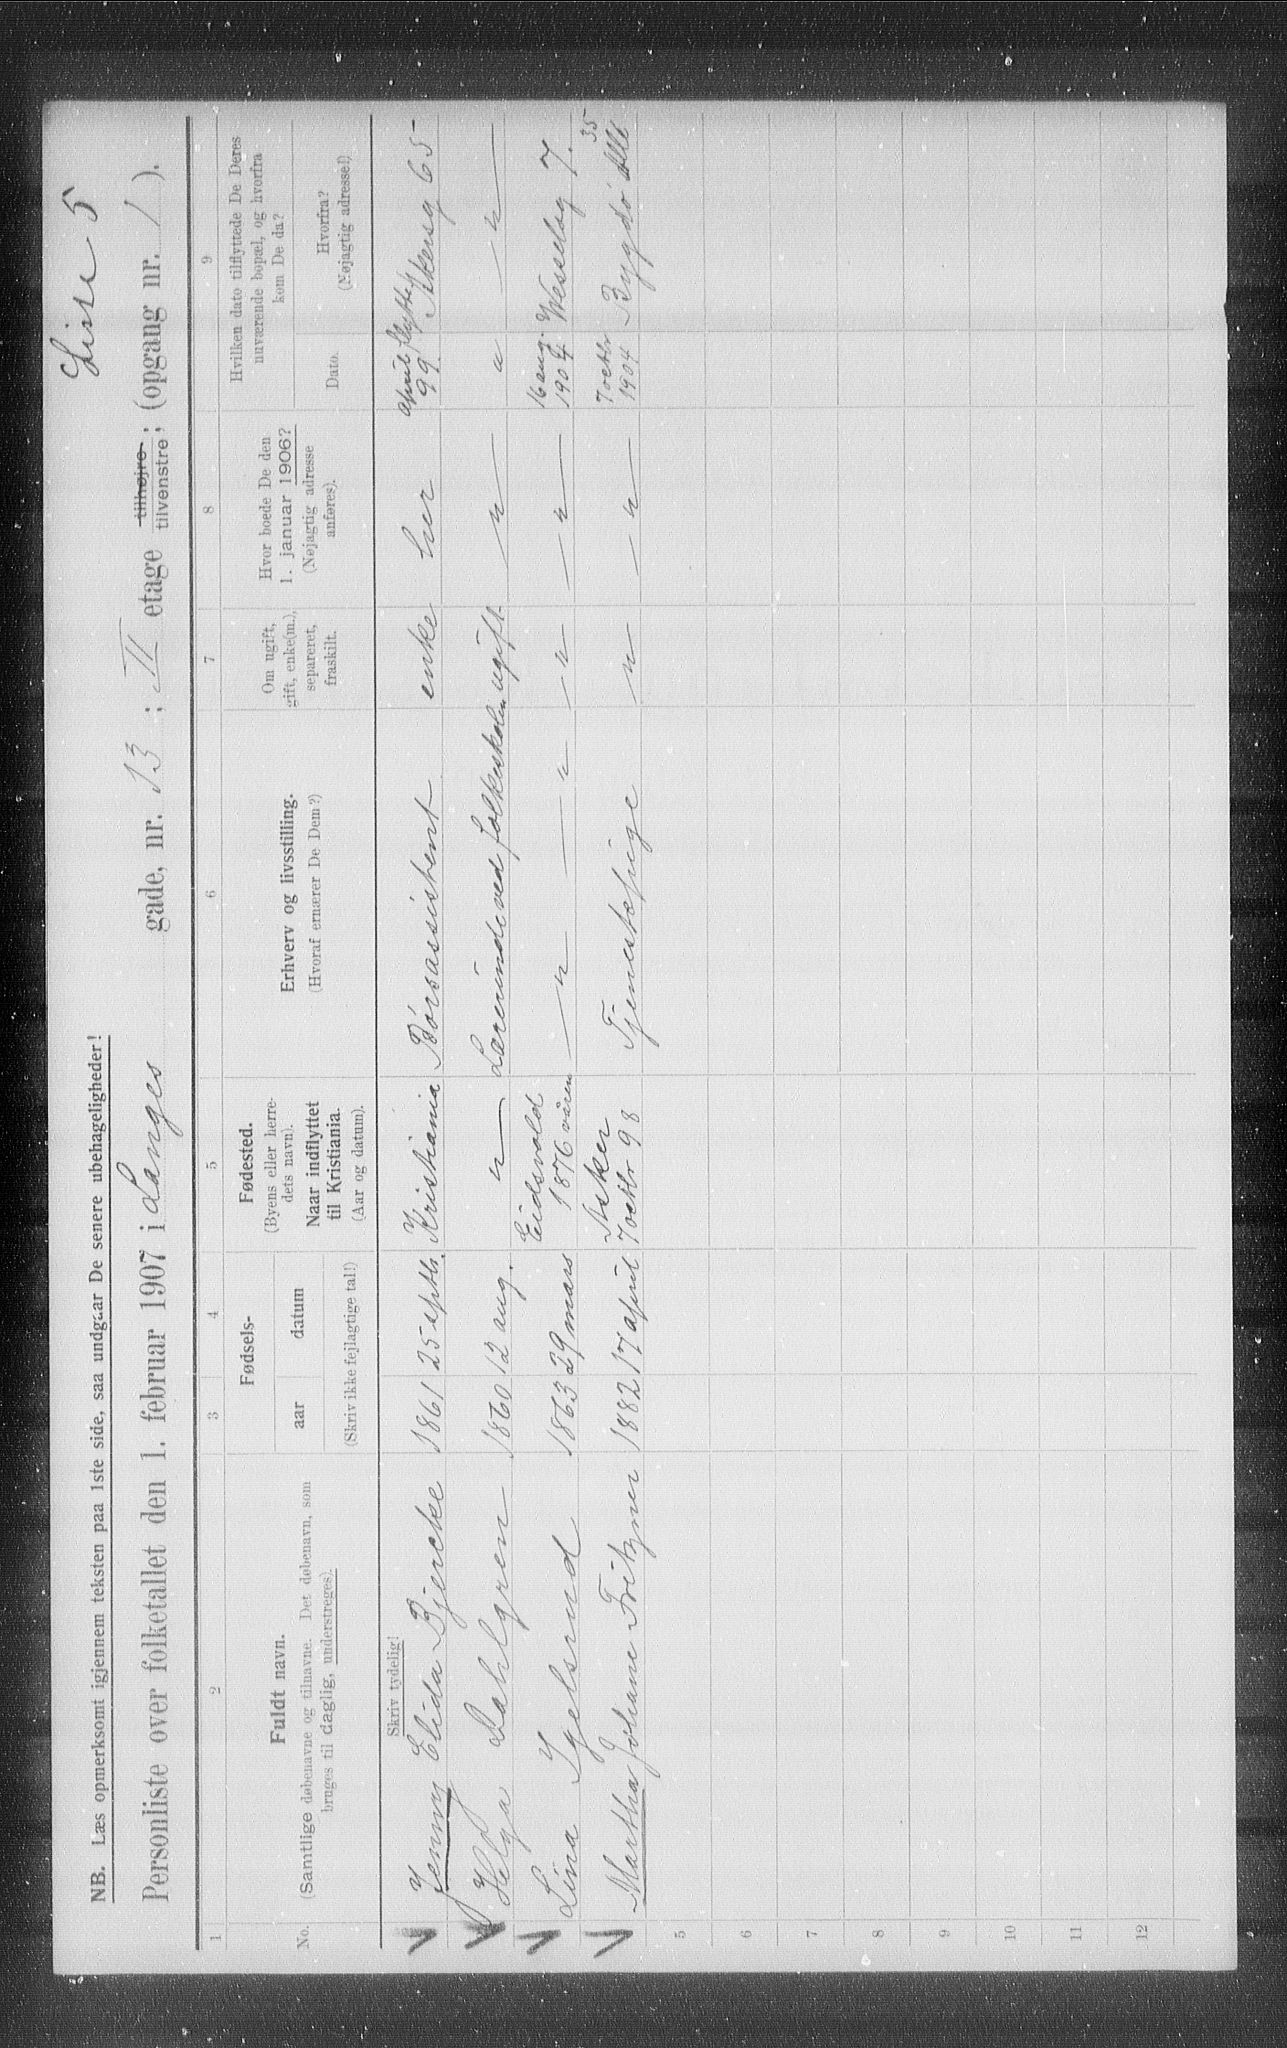 Liste 5
NB. Læs opmerksomt igjennem teksten paa 1ste side, saa undgaar De senere ubehageligheder!
Personliste over folketallet den 1. februar 1907 i Langes gade, nr. 13 ; II etage tilhøjre tilvenstre ; (opgang nr. 1 ).
1 2 3 4 5 6 7 8 9
No.
Fuldt navn.
(Samtlige døbenavne og tilnavne. Det døbenavn, som
bruges til daglig, understreges).
Fødsels-
aar datum
(Skriv ikke fejlagtige tal!)
Fødested.
(Byens eller herre-
dets navn).
Naar indflyttet
til Kristiania.
(Aar og datum).
Erhverv og livsstilling.
(Hvoraf ernærer De Dem?)
Om ugift,
gift, enke(m.),
separeret,
fraskilt.
Hvor boede De den
1. januar 1906?
(Nøjagtig adresse
anføres).
Hvilken dato tilflyttede De Deres
nuværende bopæl, og hvorfra
kom De da?
Dato.
Hvorfra?
(Nøjagtig adresse!)
Skriv tydelig!
Jenny Elida Bjercke 1861 25 septb. Kristiania Börsassistent enke her april flytte 99. Akersg 65-
Helga Dahlgren 1860 12 aug. — " — Lærerinde ved folkeskolen ugift — " — " — " —
Lina Igelsrud 1863 29 mars Eidsvold 1876 våren — " — " — " — — " — 16 aug. 1904 Wesselsg 7.
Martha Johanne Fritzner 1882 17 april Asker 7 octbr 98 Tjenestepige — " — — " — 7 octbr 1904 Bygdö Allé 35
5
6
7
8
9
10
11
12